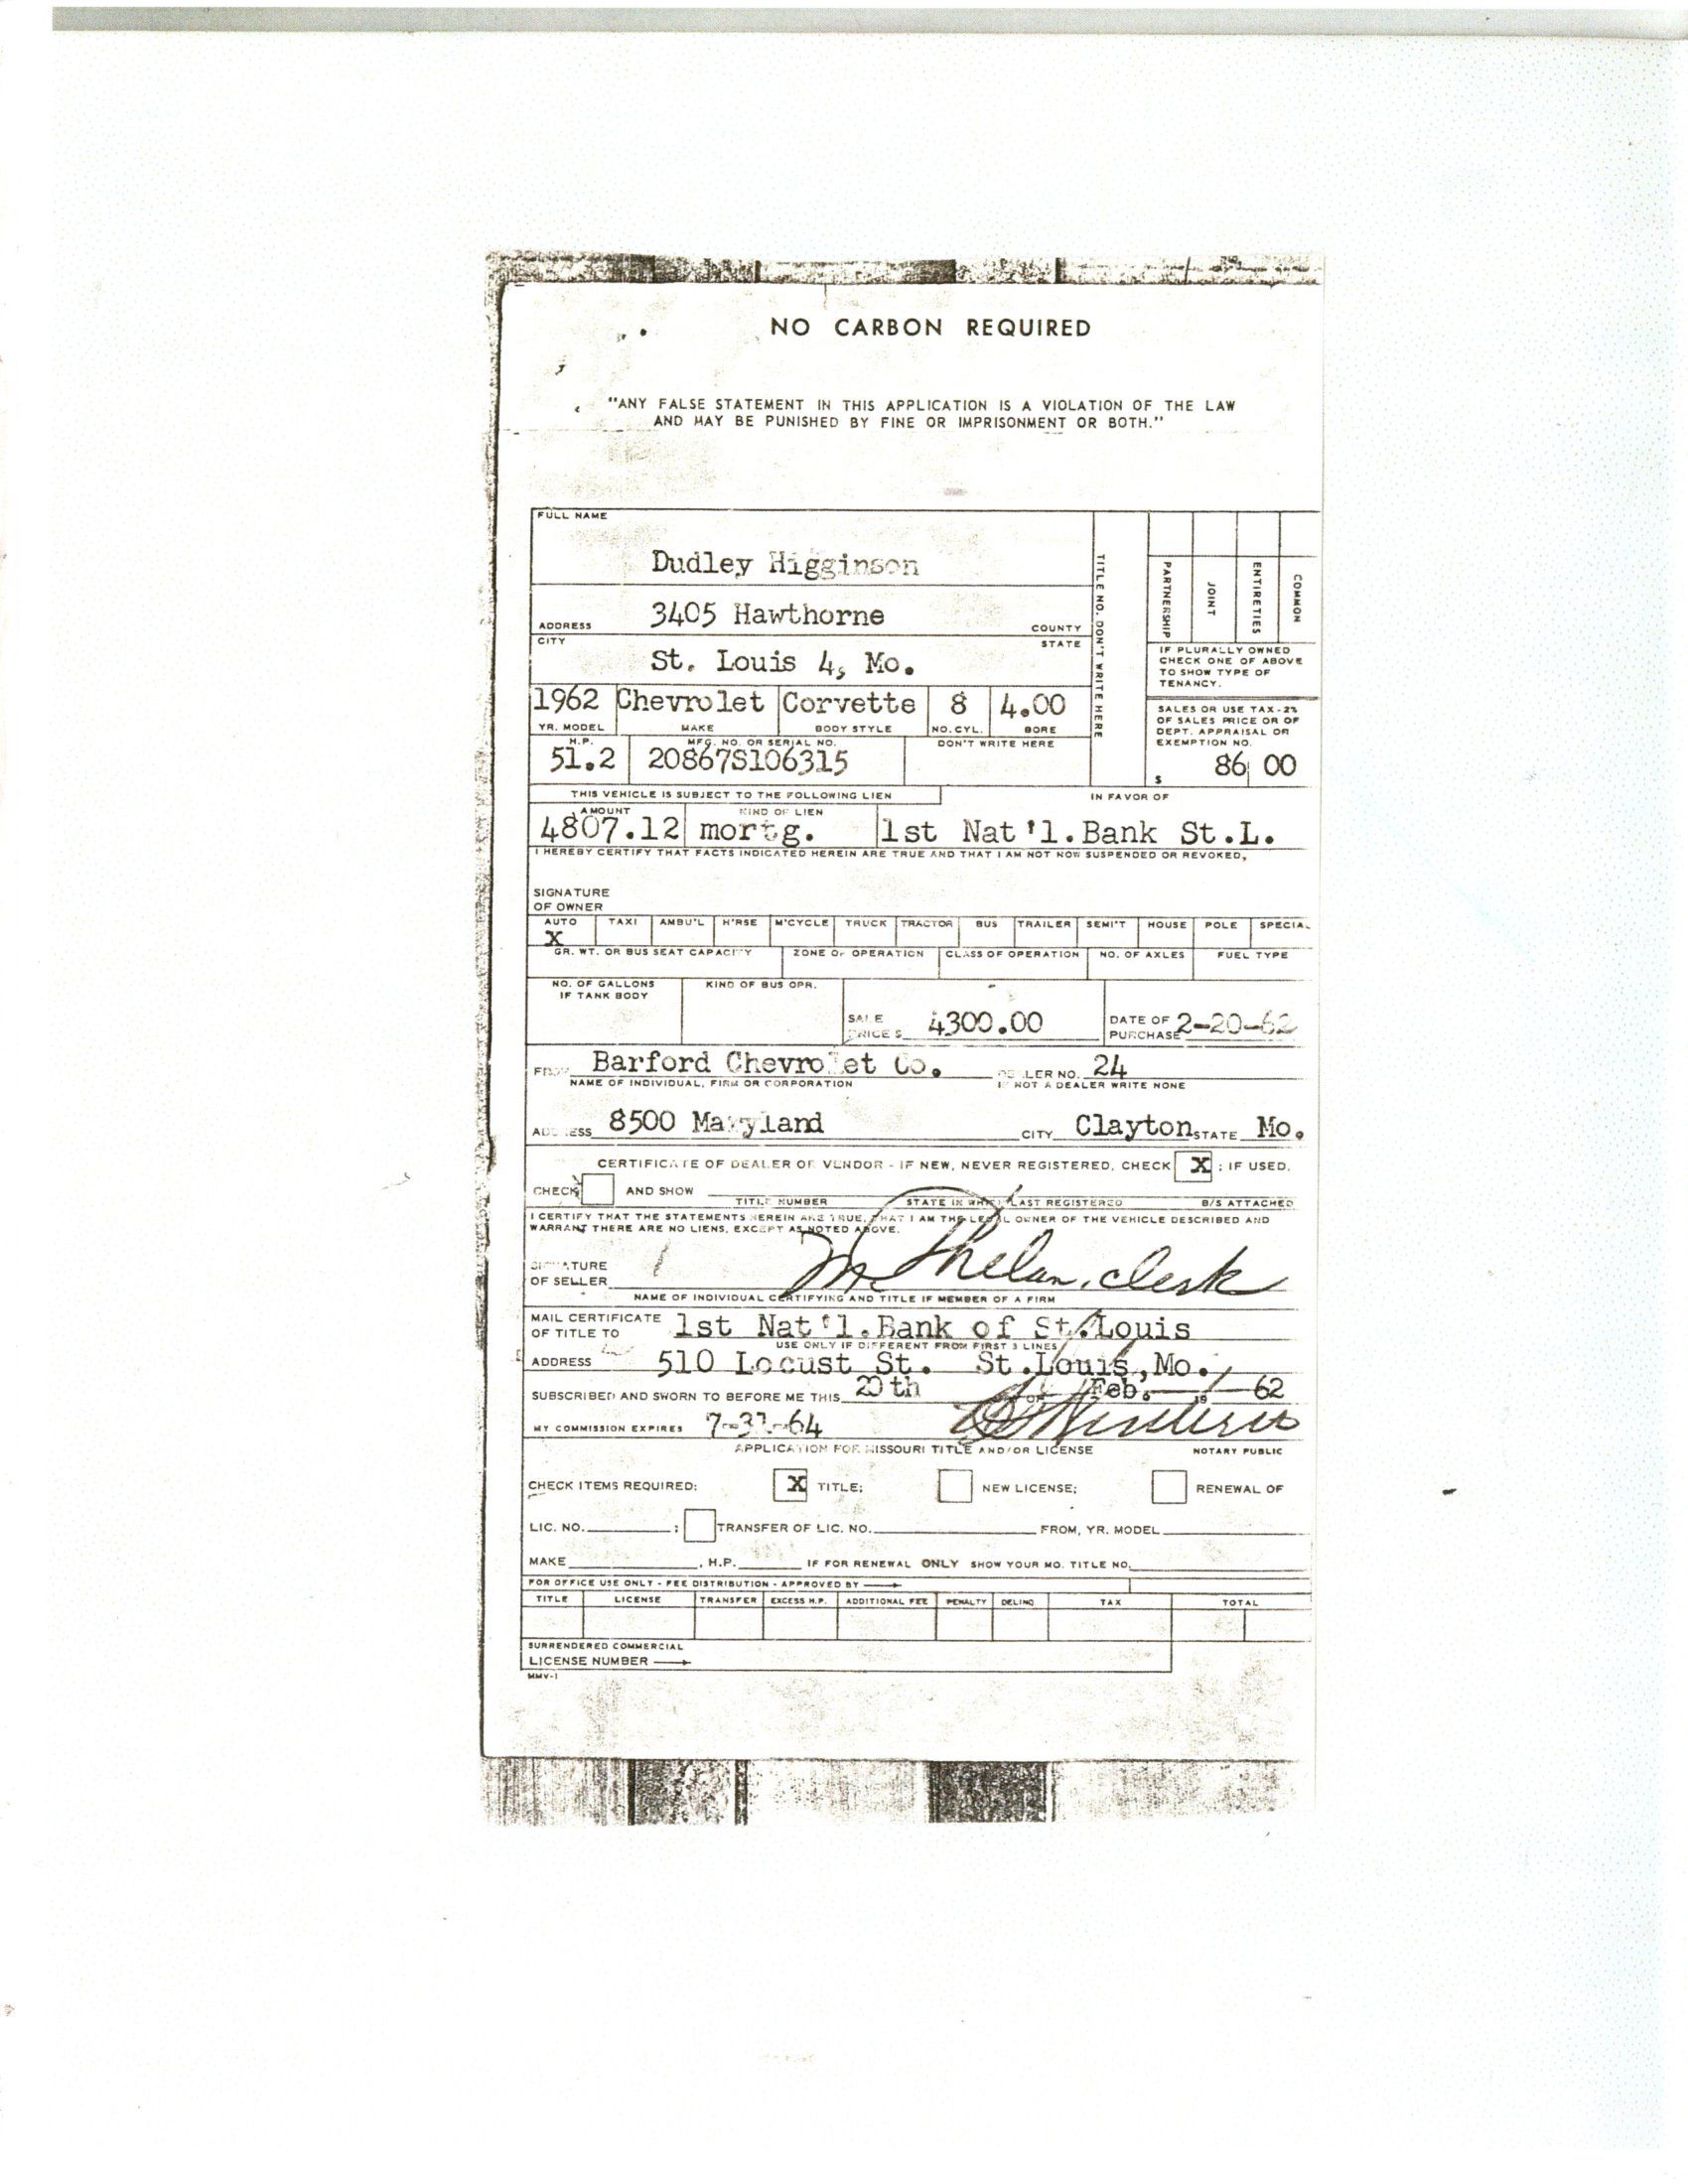 NO CARBON REQUIRED
"ANY FALSE STATEMENT IN THIS APPLICATION IS A VIOLATION OF THE LAW
AND MAY BE PUNISHED BY FINE OR IMPRISONMENT OR BOTH."
FULL NAME
Dudley Higginson
3405 Hawthorne
ADDRESS COUNTY
CITY STATE
St. Louis 4, Mo.
TITLE NO. DON'T WRITE HERE
PARTNERSHIP JOINT ENTIRETIES COMMON
IF PLURALLY OWNED
CHECK ONE OF ABOVE
TO SHOW TYPE OF
TENANCY.
1962 Chevrolet Corvette 8 4.00
YR. MODEL MAKE BODY STYLE NO. CYL. BORE
SALES OR USE TAX-2%
OF SALES PRICE OR OF
DEPT. APPRAISAL OR
EXEMPTION NO.
$ 86 00
H.P. MFG. NO. OR SERIAL NO. DON'T WRITE HERE
51.2 20867S106315
THIS VEHICLE IS SUBJECT TO THE FOLLOWING LIEN IN FAVOR OF
AMOUNT KIND OF LIEN
4807.12 mortg. 1st Nat'l.Bank St.L.
I HEREBY CERTIFY THAT FACTS INDICATED HEREIN ARE TRUE AND THAT I AM NOT NOW SUSPENDED OR REVOKED,
SIGNATURE
OF OWNER
AUTO TAXI AMBU'L H'RSE M'CYCLE TRUCK TRACTOR BUS TRAILER SEMI'T HOUSE POLE SPECIAL
X
GR. WT. OR BUS SEAT CAPACITY ZONE OF OPERATION CLASS OF OPERATION NO. OF AXLES FUEL TYPE
NO. OF GALLONS KIND OF BUS OPR.
IF TANK BODY
SALE
PRICE $ 4300.00
DATE OF
PURCHASE 2-20-62
FROM Barford Chevrolet Co. DEALER NO. 24
NAME OF INDIVIDUAL, FIRM OR CORPORATION IF NOT A DEALER WRITE NONE
ADDRESS 8500 Maryland CITY Clayton STATE Mo.
CERTIFICATE OF DEALER OR VENDOR - IF NEW, NEVER REGISTERED, CHECK X ; IF USED,
CHECK AND SHOW
TITLE NUMBER STATE IN WHICH LAST REGISTERED B/S ATTACHED
I CERTIFY THAT THE STATEMENTS HEREIN ARE TRUE, THAT I AM THE LEGAL OWNER OF THE VEHICLE DESCRIBED AND
WARRANT THERE ARE NO LIENS, EXCEPT AS NOTED ABOVE.
SIGNATURE
OF SELLER M Thelan, clerk
NAME OF INDIVIDUAL CERTIFYING AND TITLE IF MEMBER OF A FIRM
MAIL CERTIFICATE
OF TITLE TO 1st Nat'l.Bank of St.Louis
USE ONLY IF DIFFERENT FROM FIRST 3 LINES
ADDRESS 510 Locust St. St.Louis, Mo.
SUBSCRIBED AND SWORN TO BEFORE ME THIS 20th OF Feb. 19 62
MY COMMISSION EXPIRES 7-31-64
APPLICATION FOR MISSOURI TITLE AND/OR LICENSE NOTARY PUBLIC
CHECK ITEMS REQUIRED: X TITLE; NEW LICENSE; RENEWAL OF
LIC. NO. ; TRANSFER OF LIC. NO. FROM, YR. MODEL
MAKE , H.P. IF FOR RENEWAL ONLY SHOW YOUR MO. TITLE NO.
FOR OFFICE USE ONLY - FEE DISTRIBUTION - APPROVED BY
TITLE LICENSE TRANSFER EXCESS H.P. ADDITIONAL FEE PENALTY DELINQ TAX TOTAL
SURRENDERED COMMERCIAL
LICENSE NUMBER
MMV-1